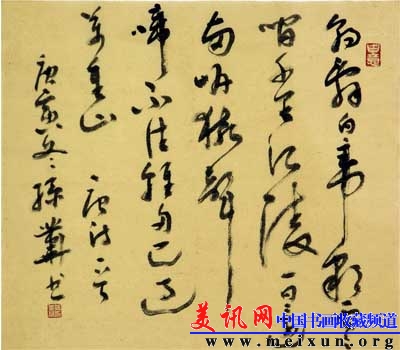 朝辞白帝彩云
间千里江陵一日还
两岸猿声
啼不住轻舟已过
万重山 唐诗一首
庚寅冬孙书
美讯网
中国书画收藏频道
www.meixun.org